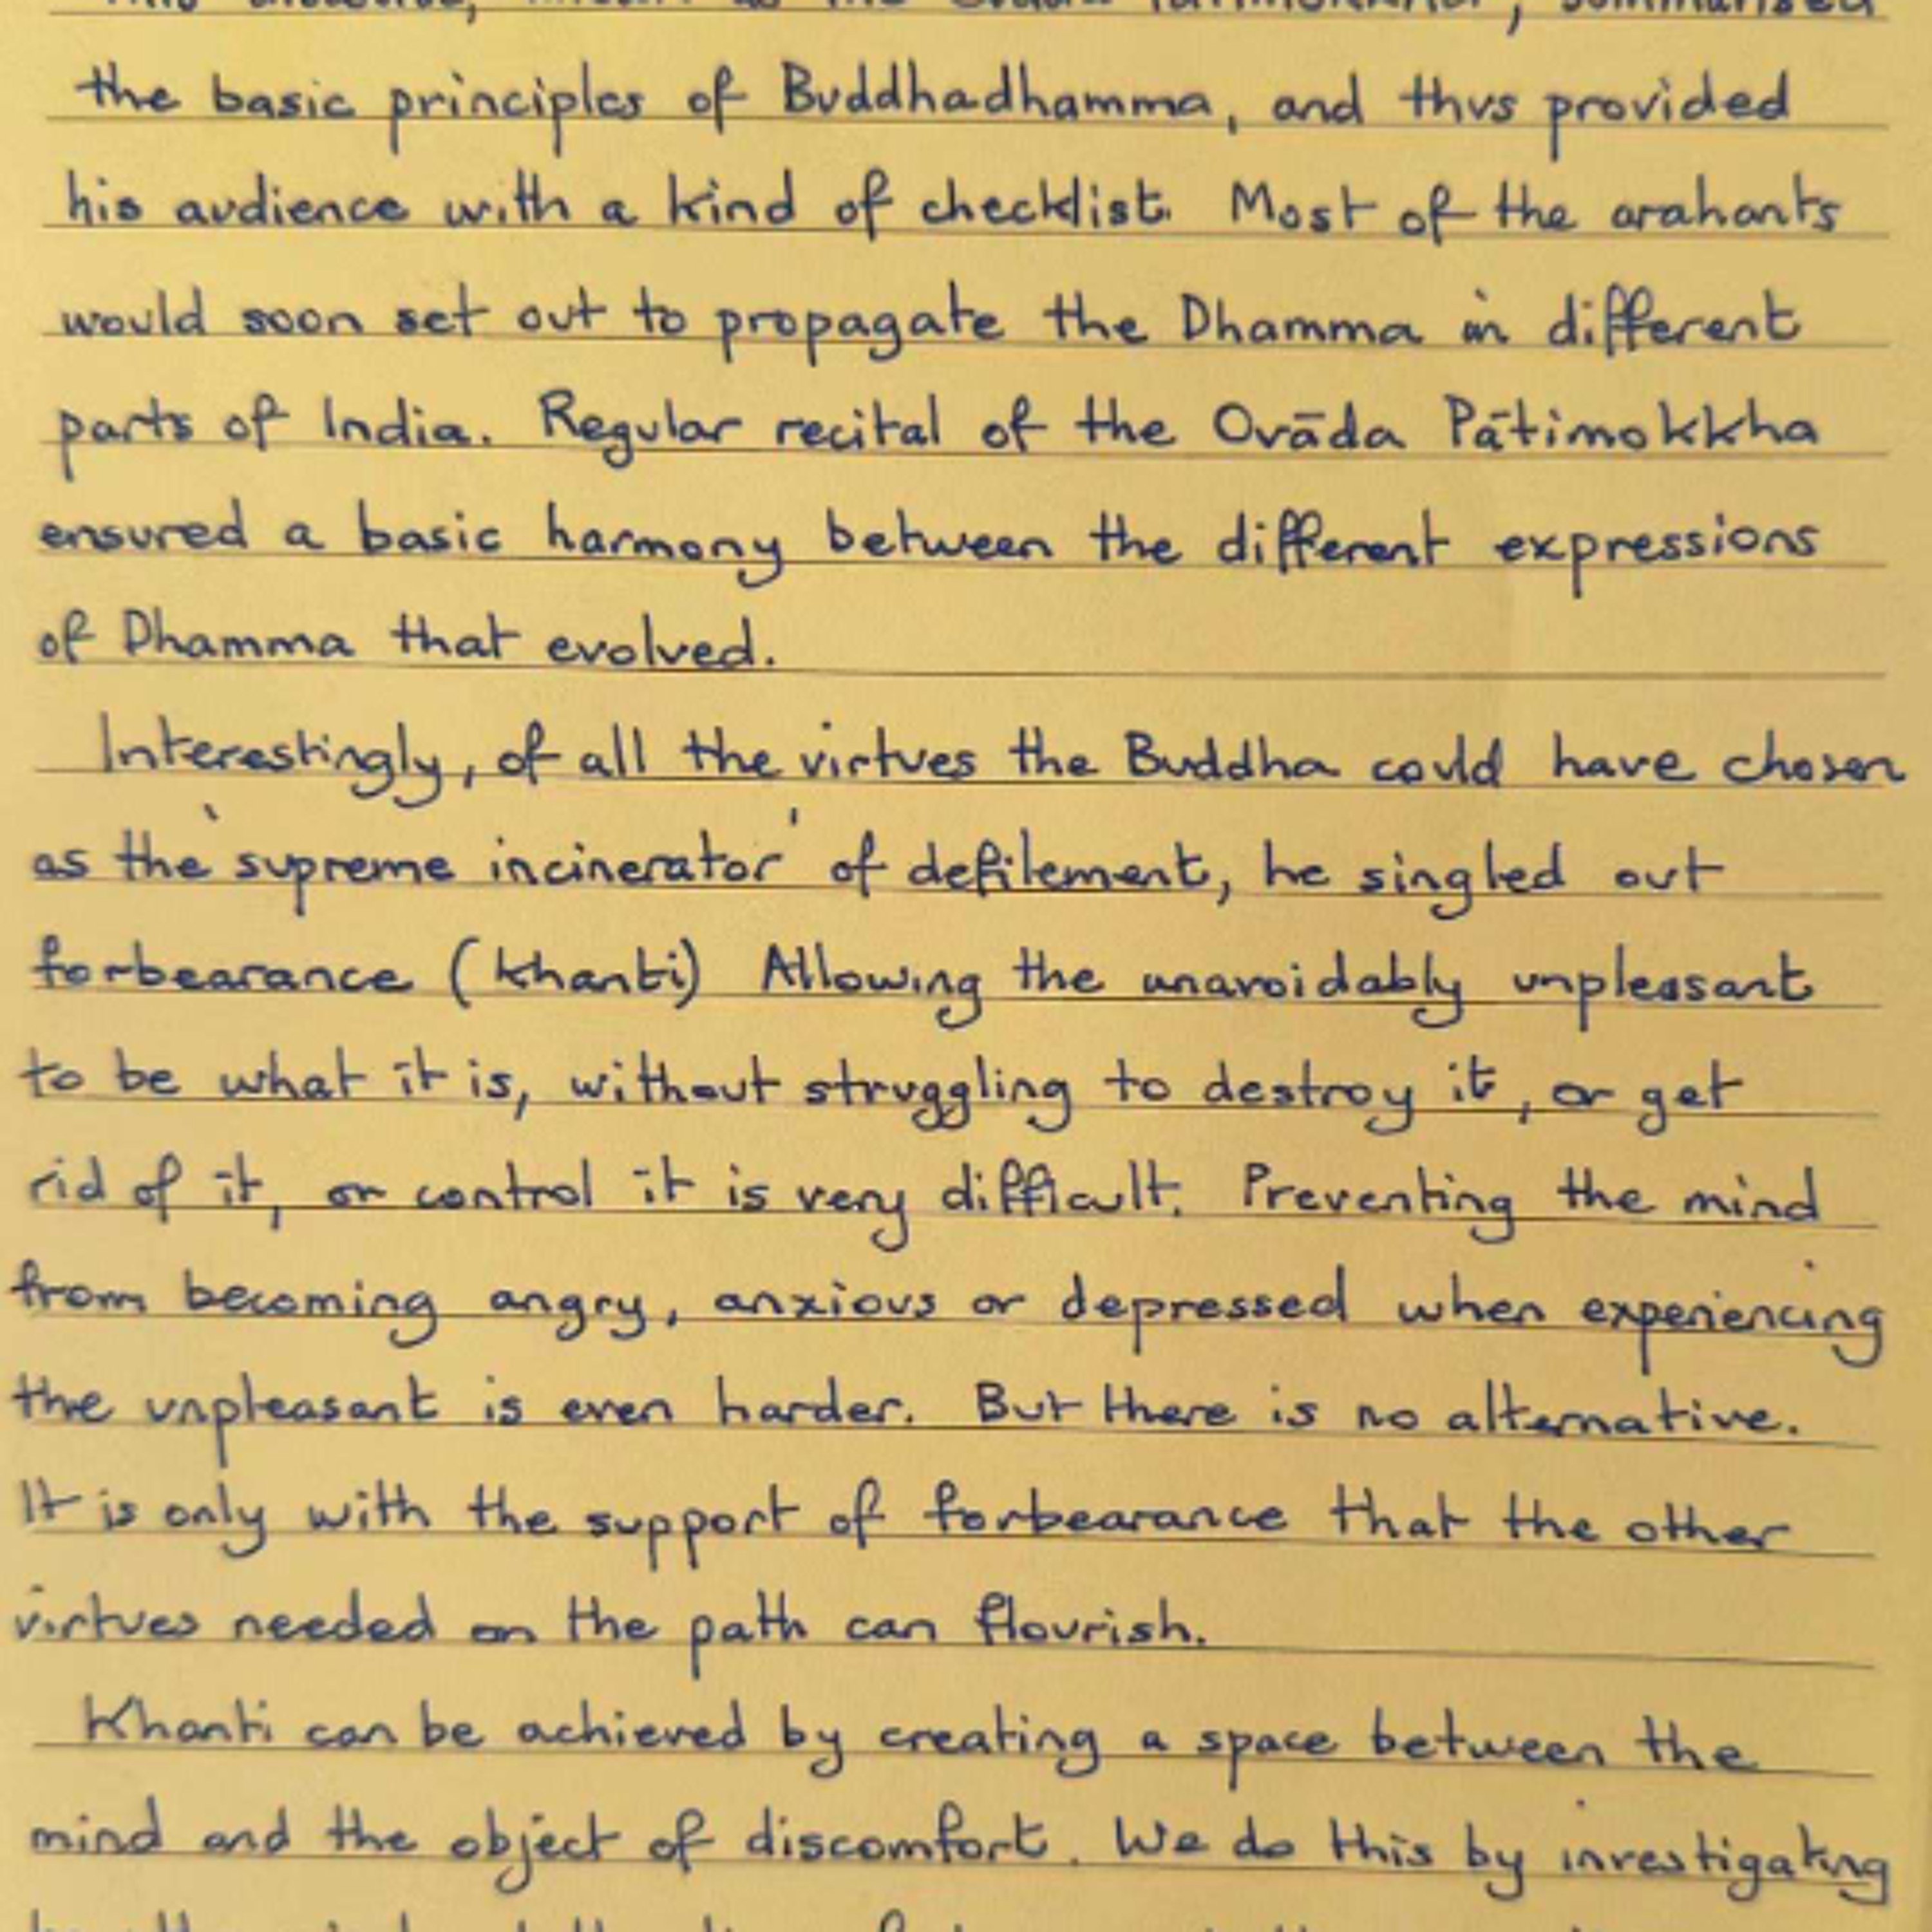 the basic principles of Buddhadhamma, and thus provided
his audience with a kind of checklist. Most of the arahants
would soon set out to propagate the Dhamma in different
parts of India. Regular recital of the Ovāda Pātimokkha
ensured a basic harmony between the different expressions
of Dhamma that evolved.
Interestingly, of all the virtues the Buddha could have chosen
as the 'supreme incinerator' of defilement, he singled out
forbearance (khanti) Allowing the unavoidably unpleasant
to be what it is, without struggling to destroy it, or get
rid of it, or control it is very difficult. Preventing the mind
from becoming angry, anxious or depressed when experiencing
the unpleasant is even harder. But there is no alternative.
It is only with the support of forbearance that the other
virtues needed on the path can flourish.
Khanti can be achieved by creating a space between the
mind and the object of discomfort. We do this by investigating